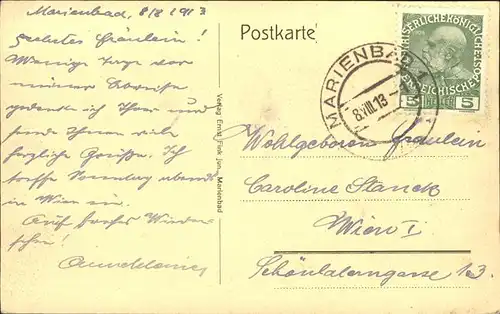 Marienbad, 8/8 1913
Geehrtes Fräulein!
Wenige Tage vor
meiner Abreise
gedenke ich Ihrer und
sende Ihnen viele
herzliche Grüße. Ich
treffe Sonntag abends
in Wien ein.
Auf frohes Wieder
sehen!
Postkarte
Verlag Ernst Fink jun., Marienbad
MARIENBAD 1
8.VIII.13
KAISERLICHE KÖNIGLICHE
ÖSTERREICHISCHE POST
5 HELLER 5
Wohlgeboren Fräulein
Caroline Stanek
Wien I
Schönlaterngasse 13